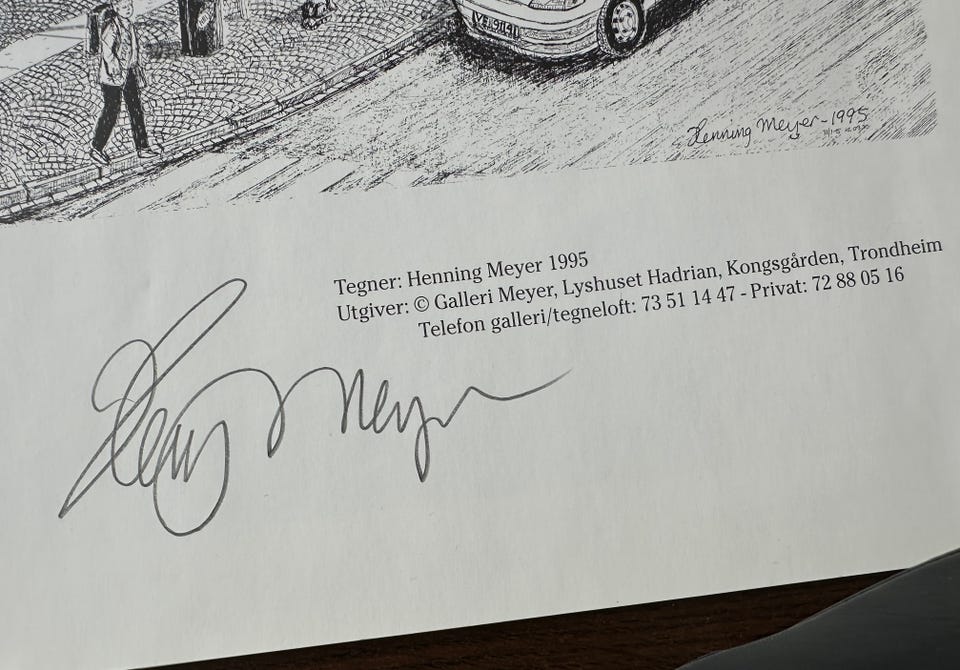 Henning Meyer - 1995
Tegner: Henning Meyer 1995
Utgiver: © Galleri Meyer, Lyshuset Hadrian, Kongsgården, Trondheim
Telefon galleri/tegneloft: 73 51 14 47 - Privat: 72 88 05 16
Henning Meyer